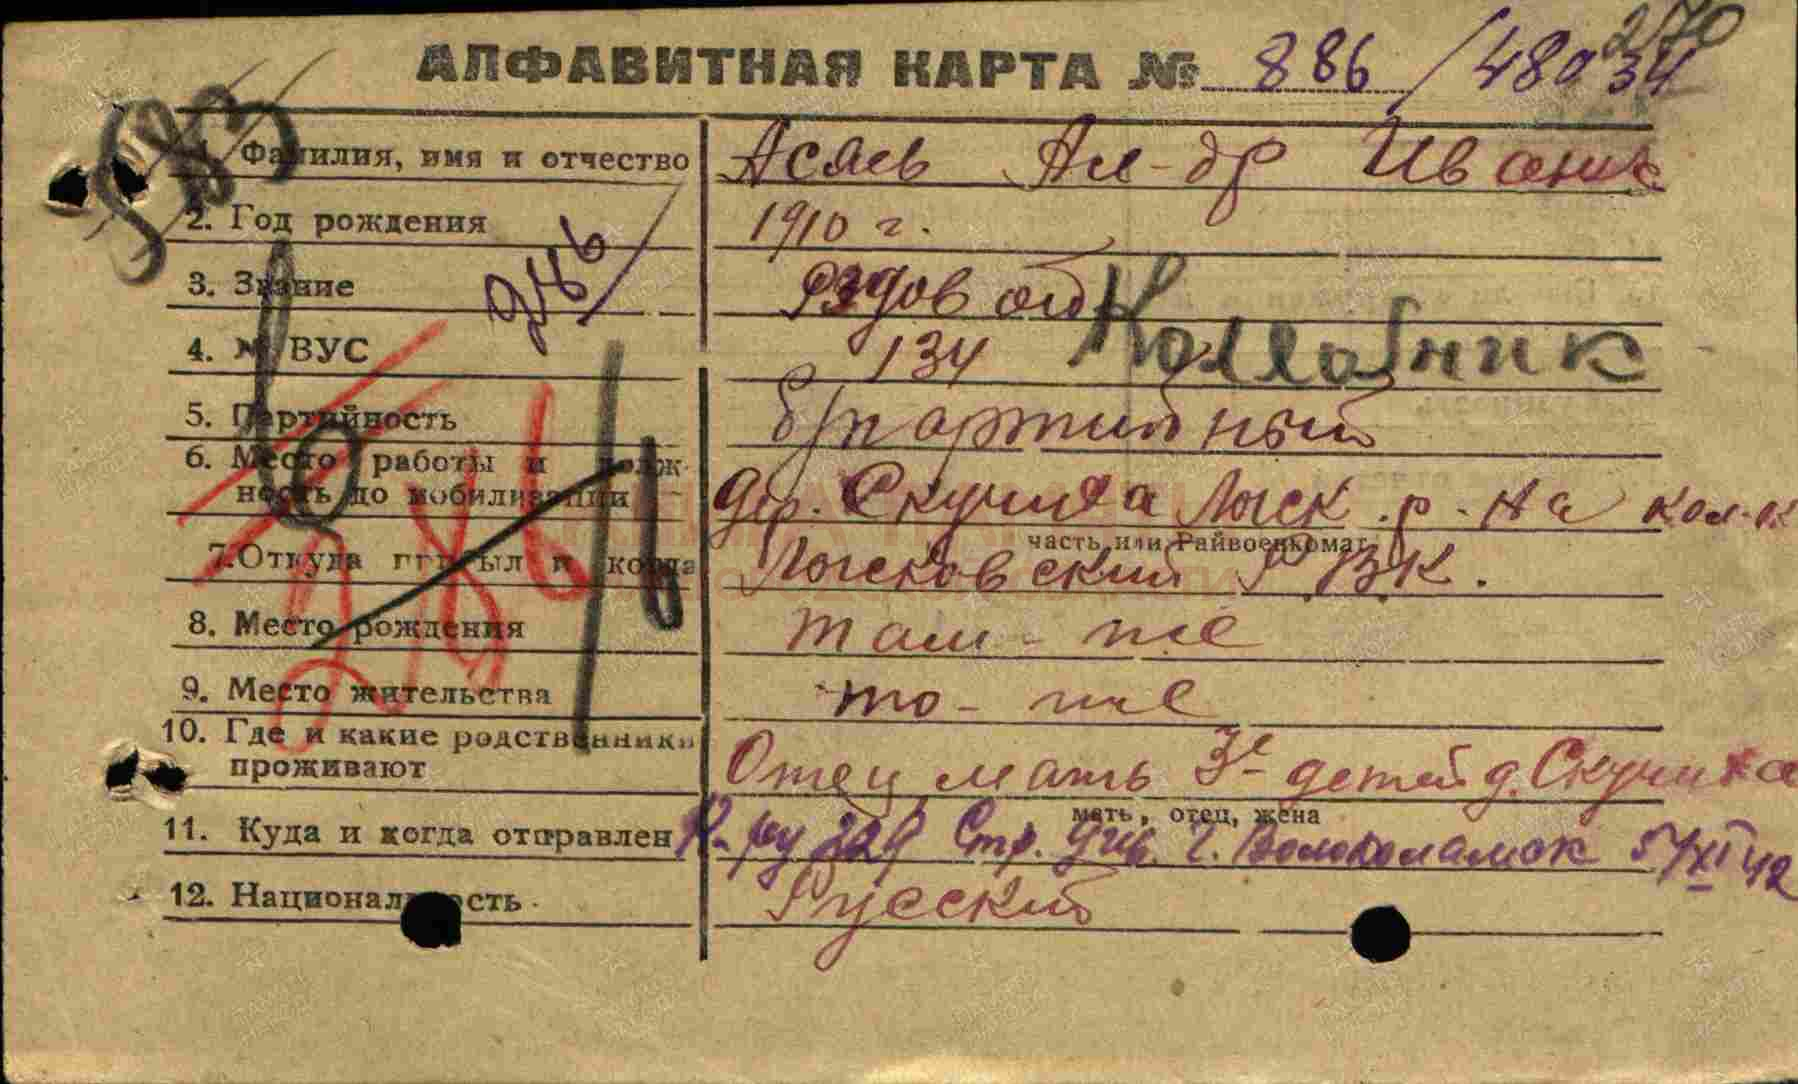 270
АЛФАВИТНАЯ КАРТА № 886/48034
1. Фамилия, имя и отчество Асяев Ал-др Иванов
2. Год рождения 1910 г.
286
3. Звание Рядовой
4. № ВУС 134 Колхозник
5. Партийность б/партийный
6. Место работы и долж-
ность до мобилизации дер. Скучиха Лыск. р-на кол-к
часть или Райвоенкомат
7. Откуда прибыл и когда Лысковский РВК.
286
8. Место рождения там-же
9. Место жительства то-же
10. Где и какие родственники
проживают Отец мать 3е детей д. Скучиха
мать, отец, жена
11. Куда и когда отправлен Стр. див. г. Волоколамск 5/XI 42
12. Национальность Русский